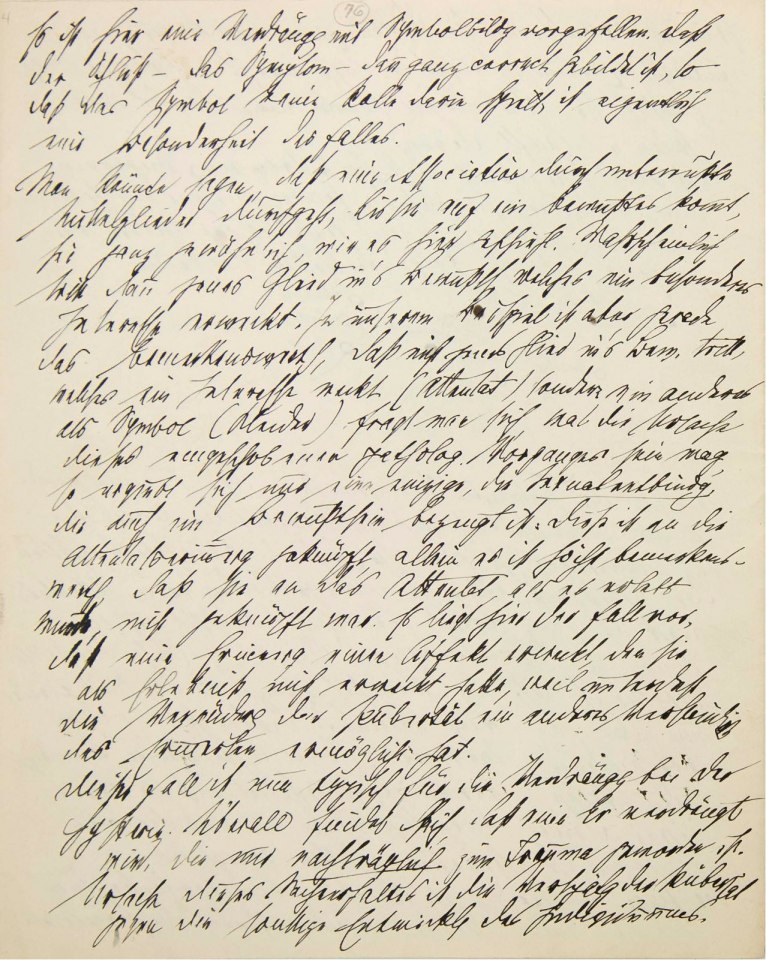 76
Es ist hier eine Verdrängg mit Symbolbildg vorgefallen. Daß
der Schluß – das Symptom – dan ganz correct gebildet ist, so
daß das Symbol keine Rolle darin spielt, ist eigentlich
eine Besonderheit des Falles.
Man könnte sagen, daß eine Association durch unbewußte
Mittelglieder durchgeht, bis sie auf ein bewußtes komt,
sei ganz gewöhnlich, wie es hier geschieht. Wahrscheinlich
tritt dan jenes Glied in's Bewußts, welches ein besonderes
Interesse erweckt. In unserem Beispiel ist aber gerade
das bemerkenswerth, daß nicht jenes Glied in's Bew. tritt,
welches ein Interesse weckt (Attentat) sondern ein anderes
als Symbol (Kleider) fragt man sich, was die Ursache
dieses eingeschobenen patholog. Vorganges sein mag,
so ergiebt sich nur eine einzige, die Sexualentbindg,
die auch im Bewußtsein bezeugt ist. Diese ist an die
Attentatserinnerg geknüpft, allein es ist höchst bemerkens-
werth, daß sie an das Attentat, als es erlebt
wurde, nicht geknüpft war. Es liegt hier der Fall vor,
daß eine Erinnerg einen Affekt erweckt, den sie
als Erlebniß nicht erweckt hatte, weil unterdeß
die Verändrg der Pubertät ein anderes Verständniß
des Erinnerten ermöglicht hat.
Dieser Fall ist nun typisch für die Verdrängg bei der
Hysterie. Überall findet sich, daß eine Er verdrängt
wird, die nur nachträglich zum Trauma geworden ist.
Ursache dieses Sachverhaltes ist die Verspätg der Pubertät
gegen die sonstige Entwicklg des Individuumes.